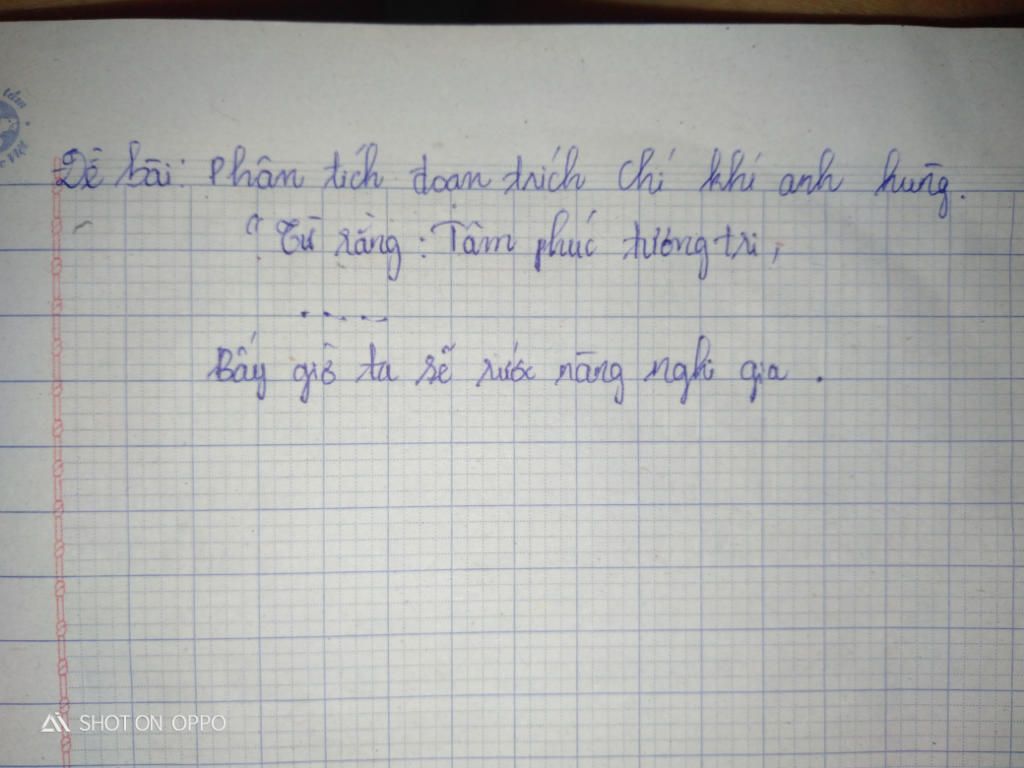 Đề bài: Phân tích đoạn trích Chí khí anh hùng.
"Từ rằng: Tâm phúc tương tri,
....
Bấy giờ ta sẽ rước nàng nghi gia.
SHOT ON OPPO